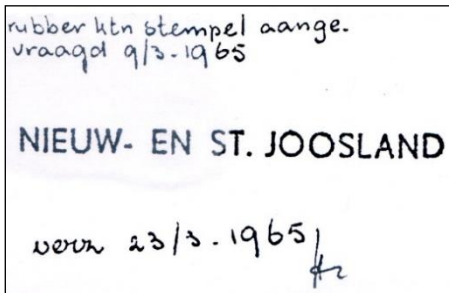 rubber ktn stempel aange-
vraagd 9/3-1965
NIEUW- EN ST. JOOSLAND
verz 23/3-1965